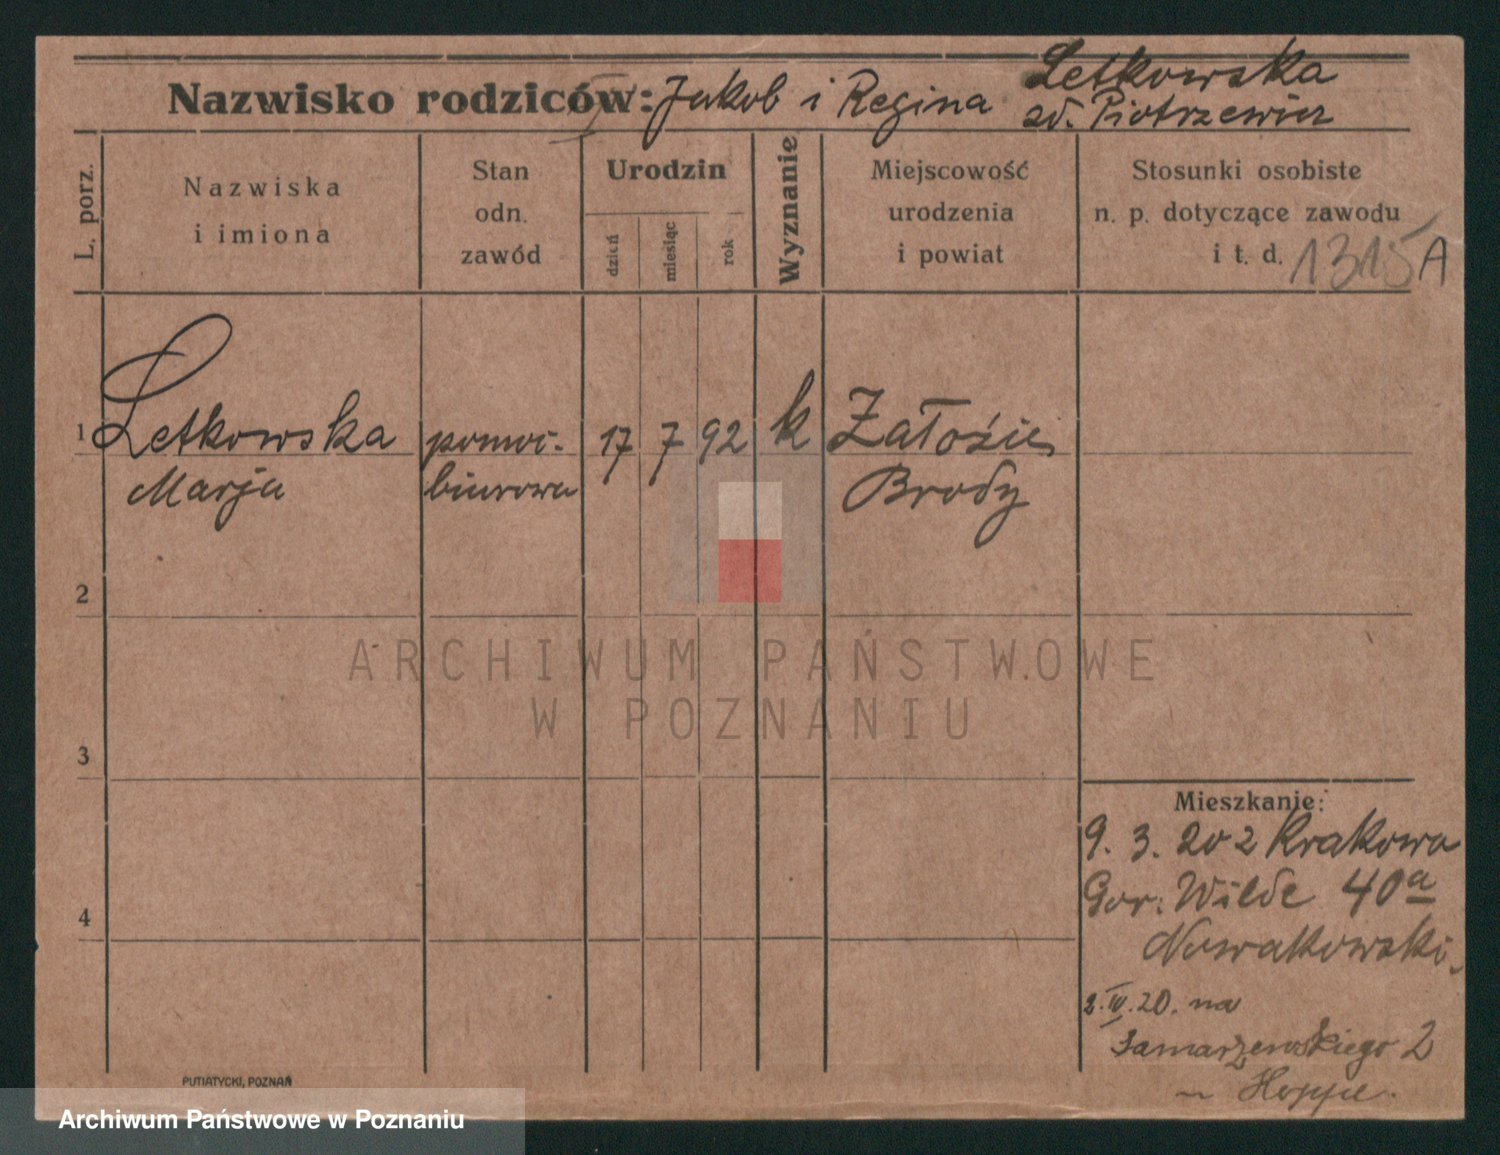 Nazwisko rodziców: Jakob i Regina Letkowska
zd. Piotrzewicz
L. porz.
Nazwiska
i imiona
Stan
odn.
zawód
Urodzin
dzień
miesiąc
rok
Wyznanie
Miejscowość
urodzenia
i powiat
Stosunki osobiste
n. p. dotyczące zawodu
i t. d. 1315 A
1 Letkowska pomoc. 17 7 92 k Założie
Marja biurowa Brody
2
3
4
Mieszkanie:
9. 3. 20 z Krakowa
Gor: Wilde 40a
Nowakowski.
2.IV.20. na
Samarzewskiego 2
Hoppe.
PUTIATYCKI, POZNAŃ
ARCHIWUM PAŃSTWOWE
W POZNANIU
Archiwum Państwowe w Poznaniu